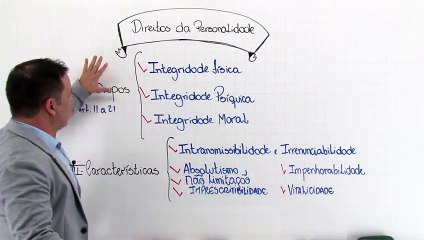 Direitos da Personalidade
Integridade física
Art. 11 a 21
Integridade Psíquica
Integridade Moral
Intransmissibilidade e Irrenunciabilidade
Características
Absolutismo,
Não limitação
Impenhorabilidade
IMPRESCRITIBILIDADE
VITALICIDADE